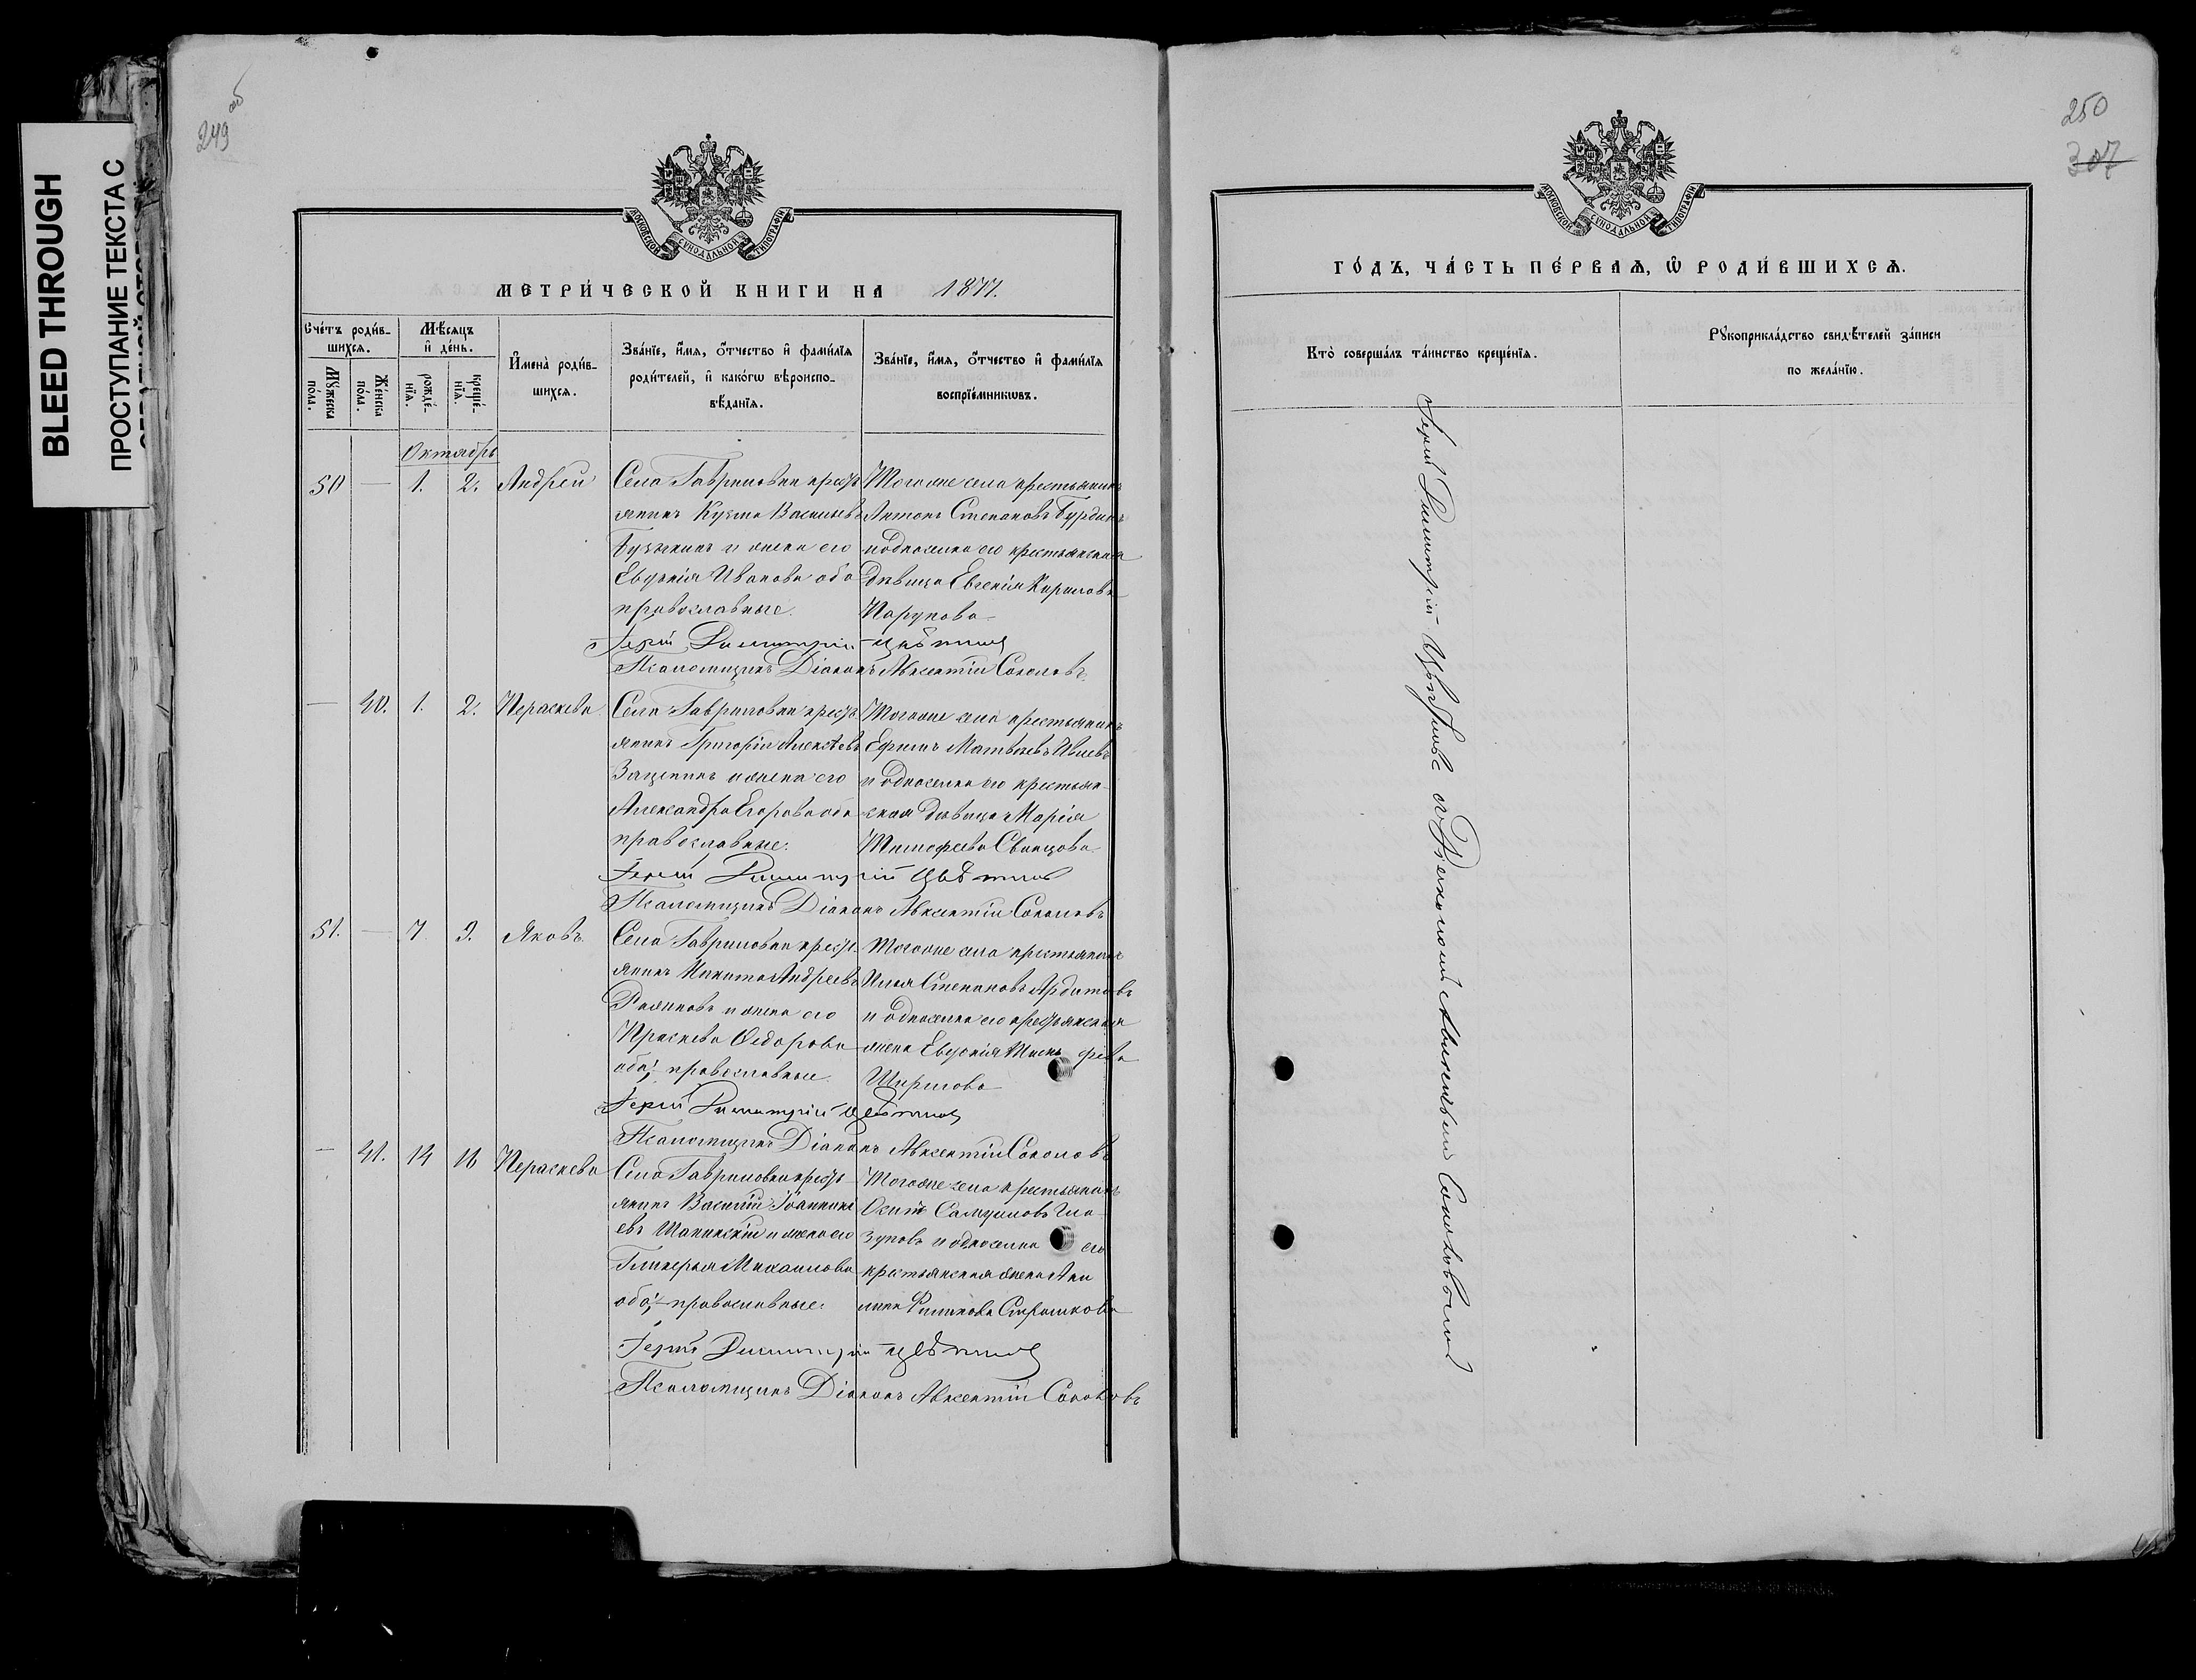 BLEED THROUGH
ПРОСТУПАНИЕ ТЕКСТА С
249 об
МОСКОВСКОЙ СѴНОДАЛЬНОЙ ТИПОГРАФІИ
МЕТРИ́ЧЕСКОЙ КНИГИ НА 1877.
Сче́тъ роди́в-
шихсѧ.
Мꙋ́жеска
по́ла.
Же́нска
по́ла.
Мѣ́сѧцъ
и҆ де́нь.
рожде́-
нїѧ.
креще́-
нїѧ.
И҆мена̀ роди́в-
шихсѧ.
Зва́нїе, и҆́мѧ, о҆́тчество и҆ фами́лїѧ
роди́телей, и҆ како́гѡ вѣроиспо-
вѣ́данїѧ.
Зва́нїе, и҆́мѧ, о҆́тчество и҆ фами́лїѧ
воспрїе́мникѡвъ.
Октябрь
50 — 1. 2. Андрей
Села Гавриловки крестъ
янинъ Кузма Васильевъ
Бузыкинъ и жена его
Евдокія Иванова оба
православные.
Тогоже села крестьянинъ
Антонъ Степановъ Бурдинъ
и односелка его крестьянская
дѣвица Евгенія Кирилова
Парунова
Іерей Димитрій Цвѣтковъ
Псаломщикъ Діаконъ Авксентій Соколовъ.
— 40. 1. 2. Параскева
Села Гавриловки крестъ
янинъ Григорій Алексѣевъ
Зацепинъ и жена его
Александра Егорова оба
православные.
Тогоже села крестьянинъ
Ефимъ Матвѣевъ Ивлевъ
и односелка его крестьян-
ская дѣвица Марія
Тимофеева Свинцова
Іерей Димитрій Цвѣтковъ
Псаломщикъ Діаконъ Авксентій Соколовъ
51. — 7 9. Яковъ.
Села Гавриловки крест.
янинъ Никита Андреевъ
и жена его
Праскева Федорова
оба православные
Тогоже села крестьянинъ
Илья Степановъ Ардатовъ
и односелка его крестьянская
жена Евдокія
Ширшова
Іерей Димитрій Цвѣтковъ
Псаломщикъ Діаконъ Авксентій Соколовъ
— 41. 14 16 Параскева
Села Гавриловки крестъ
янинъ Василій Іоанникі
евъ Шапинскій и жена его
Гликерья Михаилова
оба православные.
Тогоже села крестьянинъ
Осипъ Самуиловъ Гла-
зуновъ и односелка его
крестьянская жена Аки
лина Филипова Страшкова
Іерей Димитрій Цвѣтковъ
Псаломщикъ Діаконъ Авксентій Соколовъ
250
307
МОСКОВСКОЙ СѴНОДАЛЬНОЙ ТИПОГРАФІИ
ГО́ДЪ, ЧА́СТЬ ПЕ́РВАѦ, Ѡ҆ РОДИ́ВШИХСѦ.
Кто̀ соверша́лъ та́инство креще́нїѧ.
Рꙋкоприкла́дство свидѣ́телей за́писи
по жела́нїю.
Іерей Димитрій Цвѣтковъ съ Діакономъ Авксентіемъ Соколовымъ